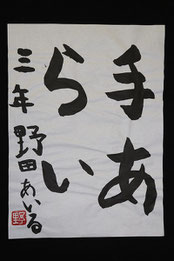 手あ
らい
三年 野田あいる
野